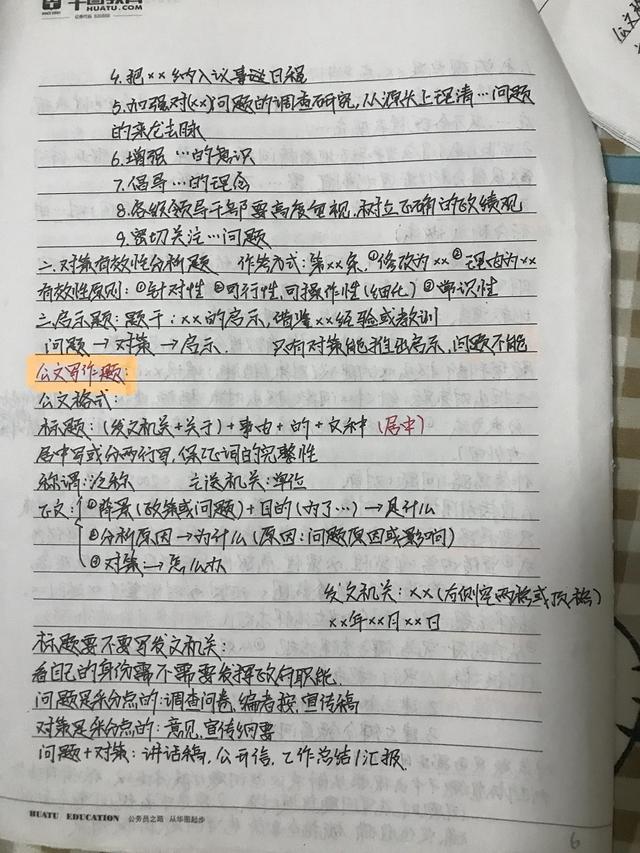 华图教育
HUATU.COM
4.把××纳入议事进日程
5.加强对(××)问题的调查研究,从源头上理清…问题
的来龙去脉
6.增强…的意识
7.倡导…的理念
8.各级领导干部要高度重视,树立正确的政绩观
9.密切关注…问题
二.对策有效性分析题 作答方式:第××条,①修改为××②理由为××
有效性原则:①针对性②可行性,可操作性(细化)③常识性
三.启示题:题干:××的启示,借鉴××经验或教训
问题→对策→启示. 只有对策能推出启示,问题不能
公文写作题:
公文格式:
标题:(发文机关+关于)+事由+的+文种(居中)
居中写或分两行写,保证词的完整性
称谓:泛称 主送机关:单位
正文:①背景(政策或问题)+目的(为了…)→是什么
②分析原因→为什么(原因:问题原因或影响)
③对策→怎么办
发文机关:××(右侧空两格或顶格)
××年××月××日
标题要不要写发文机关:
看自己的身份需不需要发挥政府职能.
问题是采分点的:调查问卷,编者按,宣传稿
对策是采分点的:意见,宣传纲要
问题+对策:讲话稿,公开信,工作总结/汇报.
HUATU EDUCATION 公务员之路 从华图起步
6